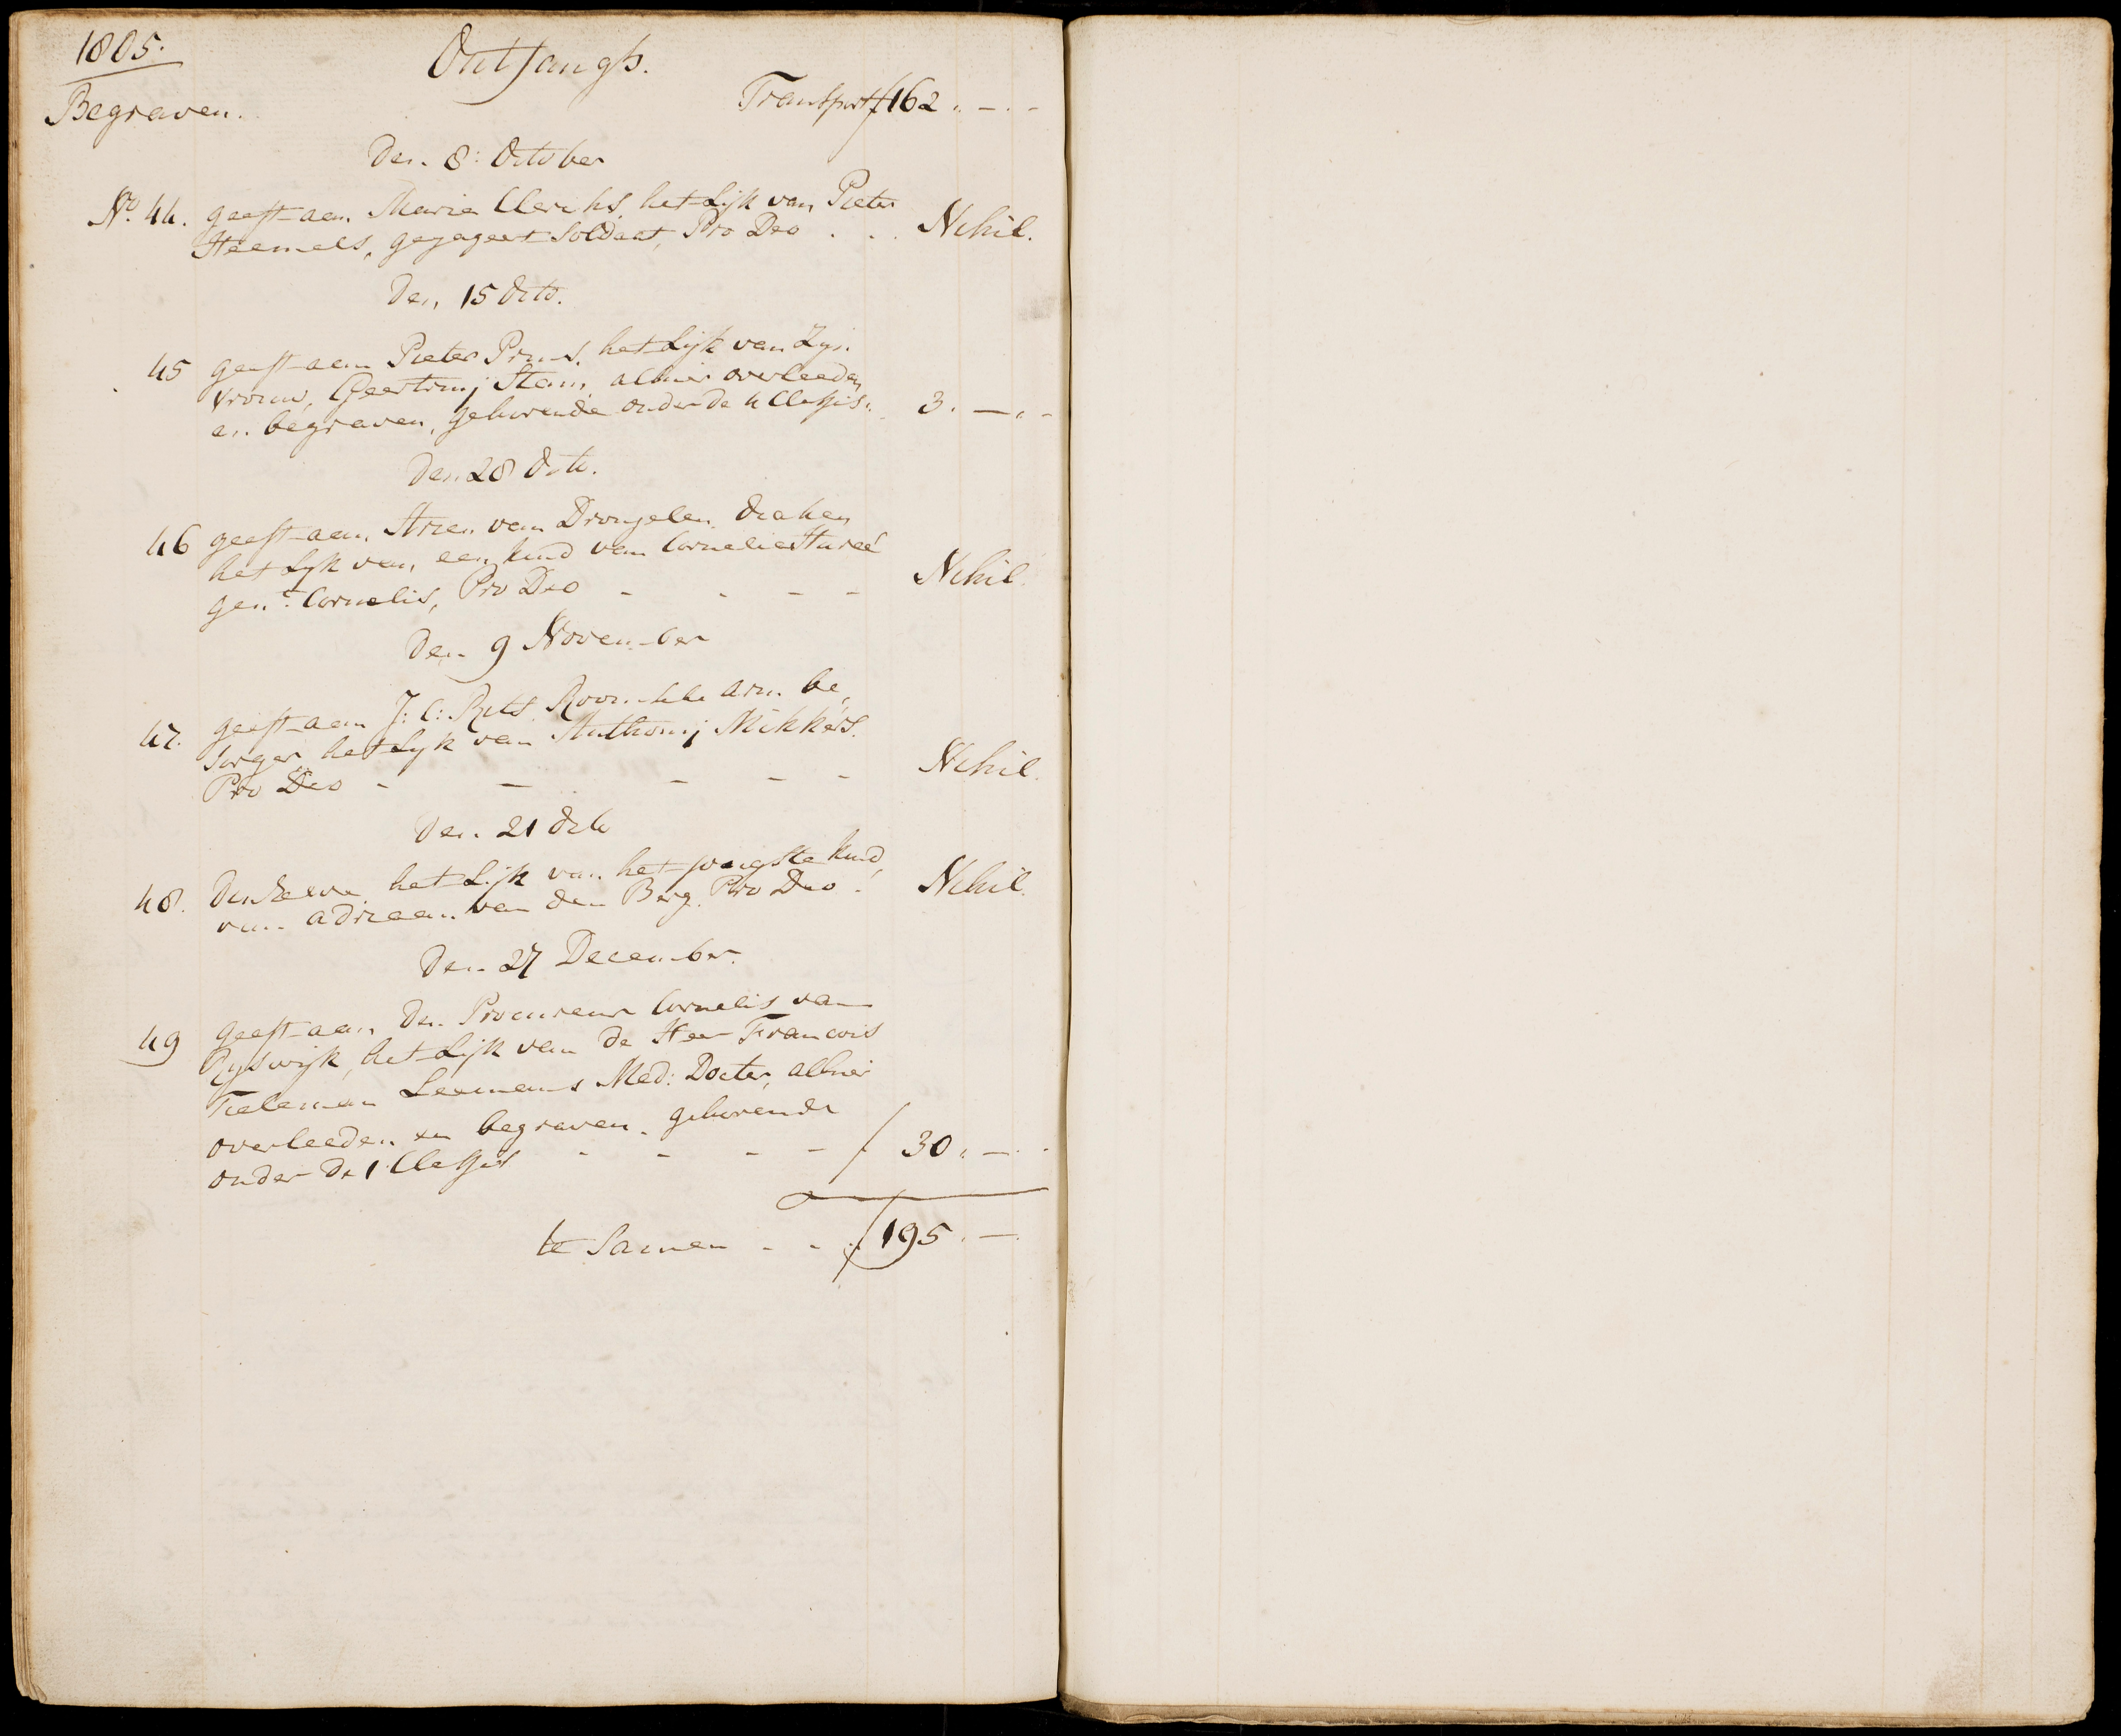 1805.
Ontfangst.
Begraven.
Transport f 162 . - . -
Den 8: October
No. 44. geeft aan Maria Clerihs, het Lijk van Pieter
Heemels, gegageert Soldaat, Pro Deo . . . Nihil.
Den 15 dito.
45 geeft aan Pieter Prins, het Lijk van Zijn
vrouw, Geertruij Stam, alhier overleeden
en begraven, gehorende onder de 4 Classis. 3. - . -
Den 28 dito.
46 geeft aan Arien van Drongelen diaken
het Lyk van een kind van Cornelia
gent. Cornelis, Pro Deo - - - - Nihil
Den 9 November
47. geeft aan J: C: Rits Roomsche arm be,
sorger het Lyk van Anthonij Mikkers.
Pro Deo - - - - - Nihil.
Den 21 dito
48. Denselve het Lijk van het jongste kind,
van adriaan van den Berg. Pro Deo . Nihil.
Den 27 December.
49 geeft aan den Procureur Cornelis van
Ryswijk, het Lijk van de Heer Francois
Tieleman Leemans Med: Docter, alhier
overleeden en begraven, gehorende
onder de 1 Classis - - - - f 30 . - .
te Samen - - . f 195 . -